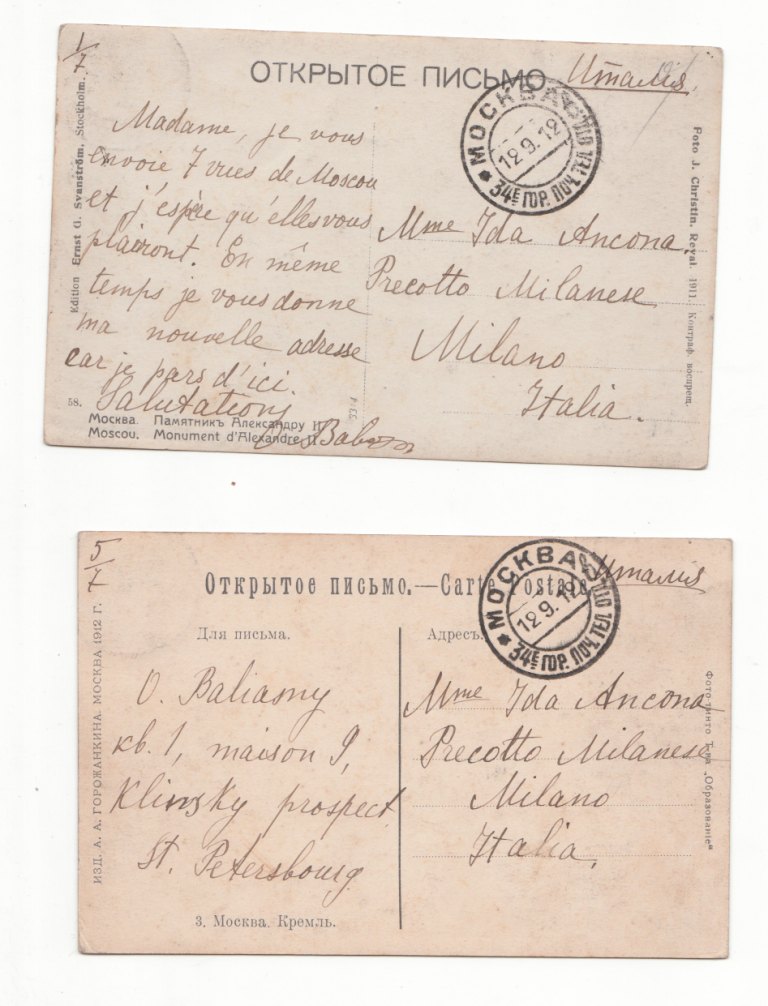 1/7
ОТКРЫТОЕ ПИСЬМО
Италія.
Edition Ernst G. Svanström, Stockholm.
Madame, je vous
envoie 7 vues de Moscou
et j'espère qu'elles vous
plairont. En même
temps je vous donne
ma nouvelle adresse
car je pars d'ici.
Salutations
МОСКВА
12.9.12
34Е ГОР. ПОЧ. ТЕЛ. ОТД.
Mme Ida Ancona.
Precotto Milanese
Milano
Italia.
Foto J. Christin, Reval. 1911. Контраф. воспрещ.
58.
Москва. Памятникъ Александру II
Moscou. Monument d'Alexandre II
5/7
Открытое письмо.—Carte Postale
Италія
ИЗД. А. А. ГОРОЖАНКИНА. МОСКВА 1912 Г.
Для письма.
O. Baliasny
кв. 1, maison 9,
Klinsky prospect.
St. Petersbourg
Адресъ.
МОСКВА
12.9.12
34Е ГОР. ПОЧ. ТЕЛ. ОТД.
Mme Ida Ancona
Precotto Milanese
Milano
Italia.
Фото-тинто Т-ва „Образованіе“
3. Москва. Кремль.